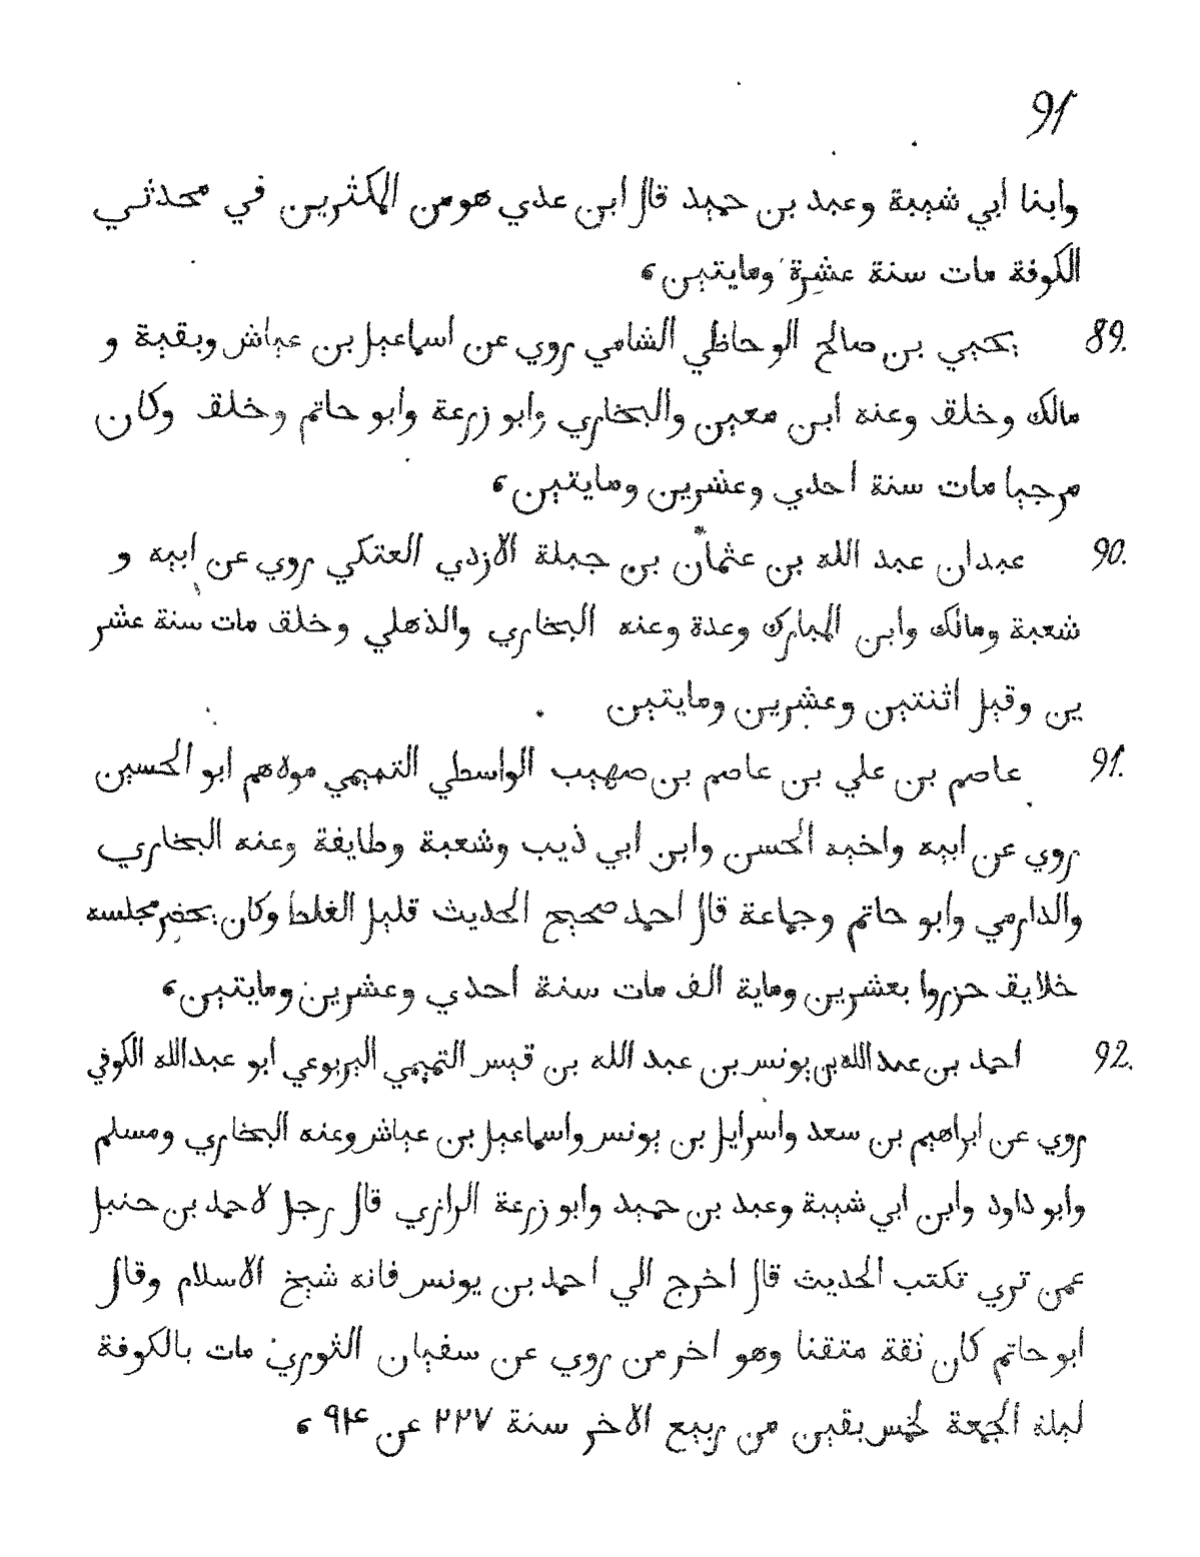 91
وابنا ابي شيبة وعبد بن حميد قال ابن عدي هومن المكثرين في محدثي
الكوفة مات سنة عشرة ومايتين،
89. يحيي بن صالح الوحاظي الشامي روي عن اسماعيل بن عياش وبقية و
مالك وخلق وعنه ابن معين والبخاري وابو زرعة وابو حاتم وخلق وكان
مرجيا مات سنة احدي وعشرين ومايتين،
90. عبدان عبد الله بن عثمان بن جبلة الازدي العتكي روي عن ابيه و
شعبة ومالك وابن المبارك وعدة وعنه البخاري والذهلي وخلق مات سنة عشر
ين وقيل اثنتين وعشرين ومايتين
91. عاصم بن علي بن عاصم بن صهيب الواسطي التميمي مولاهم ابو الحسين
روي عن ابيه واخيه الحسن وابن ابي ذيب وشعبة وطايفة وعنه البخاري
والدارمي وابو حاتم وجماعة قال احمد صحيح الحديث قليل الغلط وكان يحضر مجلسه
خلايق حزروا بعشرين وماية الف مات سنة احدي وعشرين ومايتين،
92. احمد بن عبد الله بن يونس بن عبد الله بن قيس التميمي اليربوعي ابو عبد الله الكوفي
روي عن ابراهيم بن سعد واسرايل بن يونس واسماعيل بن عياش وعنه البخاري ومسلم
وابو داود وابن ابي شيبة وعبد بن حميد وابو زرعة الرازي قال رجل لاحمد بن حنبل
عمن تري تكتب الحديث قال اخرج الي احمد بن يونس فانه شيخ الاسلام وقال
ابو حاتم كان ثقة متقنا وهو اخر من روي عن سفيان الثوري مات بالكوفة
ليلة الجمعة لخمس بقين من ربيع الاخر سنة ٢٢٧ عن ٩٤،